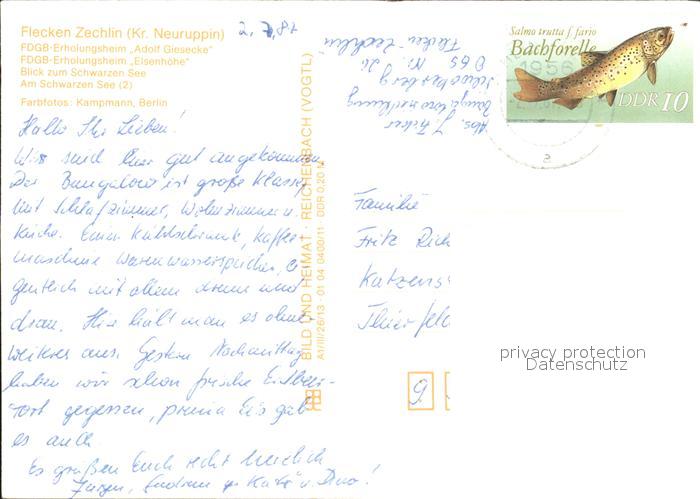 Flecken Zechlin (Kr. Neuruppin)
FDGB-Erholungsheim „Adolf Giesecke"
FDGB-Erholungsheim „Elsenhöhe"
Blick zum Schwarzen See
Am Schwarzen See (2)
Farbfotos: Kampmann, Berlin
2.7.87
Hallo Ihr Lieben!
Wir sind hier gut angekommen.
Der Bungalow ist große Klasse,
mit Schlafzimmer, Wohnzimmer u.
Küche. Einen Kühlschrank, Kaffee-
maschine Warmwasserspeicher, ei
gentlich mit allem drum und
dran. Hier hält man es ohne
weiteres aus. Gestern Nachmittag
haben wir schon frische Erdbeer-
tort gegessen, prima Eis gab
es auch.
Es grüßen Euch recht herzlich
Jürgen, u. Dino!
BILD UND HEIMAT · REICHENBACH (VOGTL)
A1/III/26/13 · 01 04 0400/11 DDR 0,20 M
Abs. J.
Bungalowsiedlung
Flecken-Zechlin
Salmo trutta f. fario
Bachforelle
DDR 10
1956
a
Familie
Fritz
Katzens
Thierfeld
9
privacy protection
Datenschutz